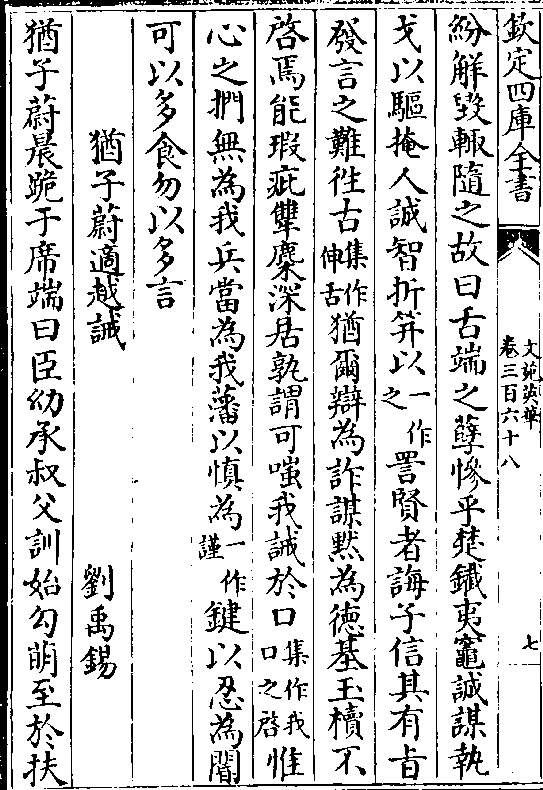 欽定四庫全書
文苑英華
卷三百六十八
七
紛解毀輒隨之故曰舌端之孽慘乎楚鐵夷竈誠謀執
戈以驅掩人誠智折筭以一作之詈賢者誨子信其有旨
發言之難徃古集作伸舌猶爾辯為詐謀黙為徳基玉櫝不
啓焉能瑕疵犫麋深居孰謂可嗤我誡於口集作我口之啓惟
心之捫無為我兵當為我藩以慎為一作謹鍵以忍為閽
可以多食勿以多言
猶子蔚適越誡
劉禹錫
猶子蔚晨跪于席端曰臣幼承叔父訓始勾萌至於扶